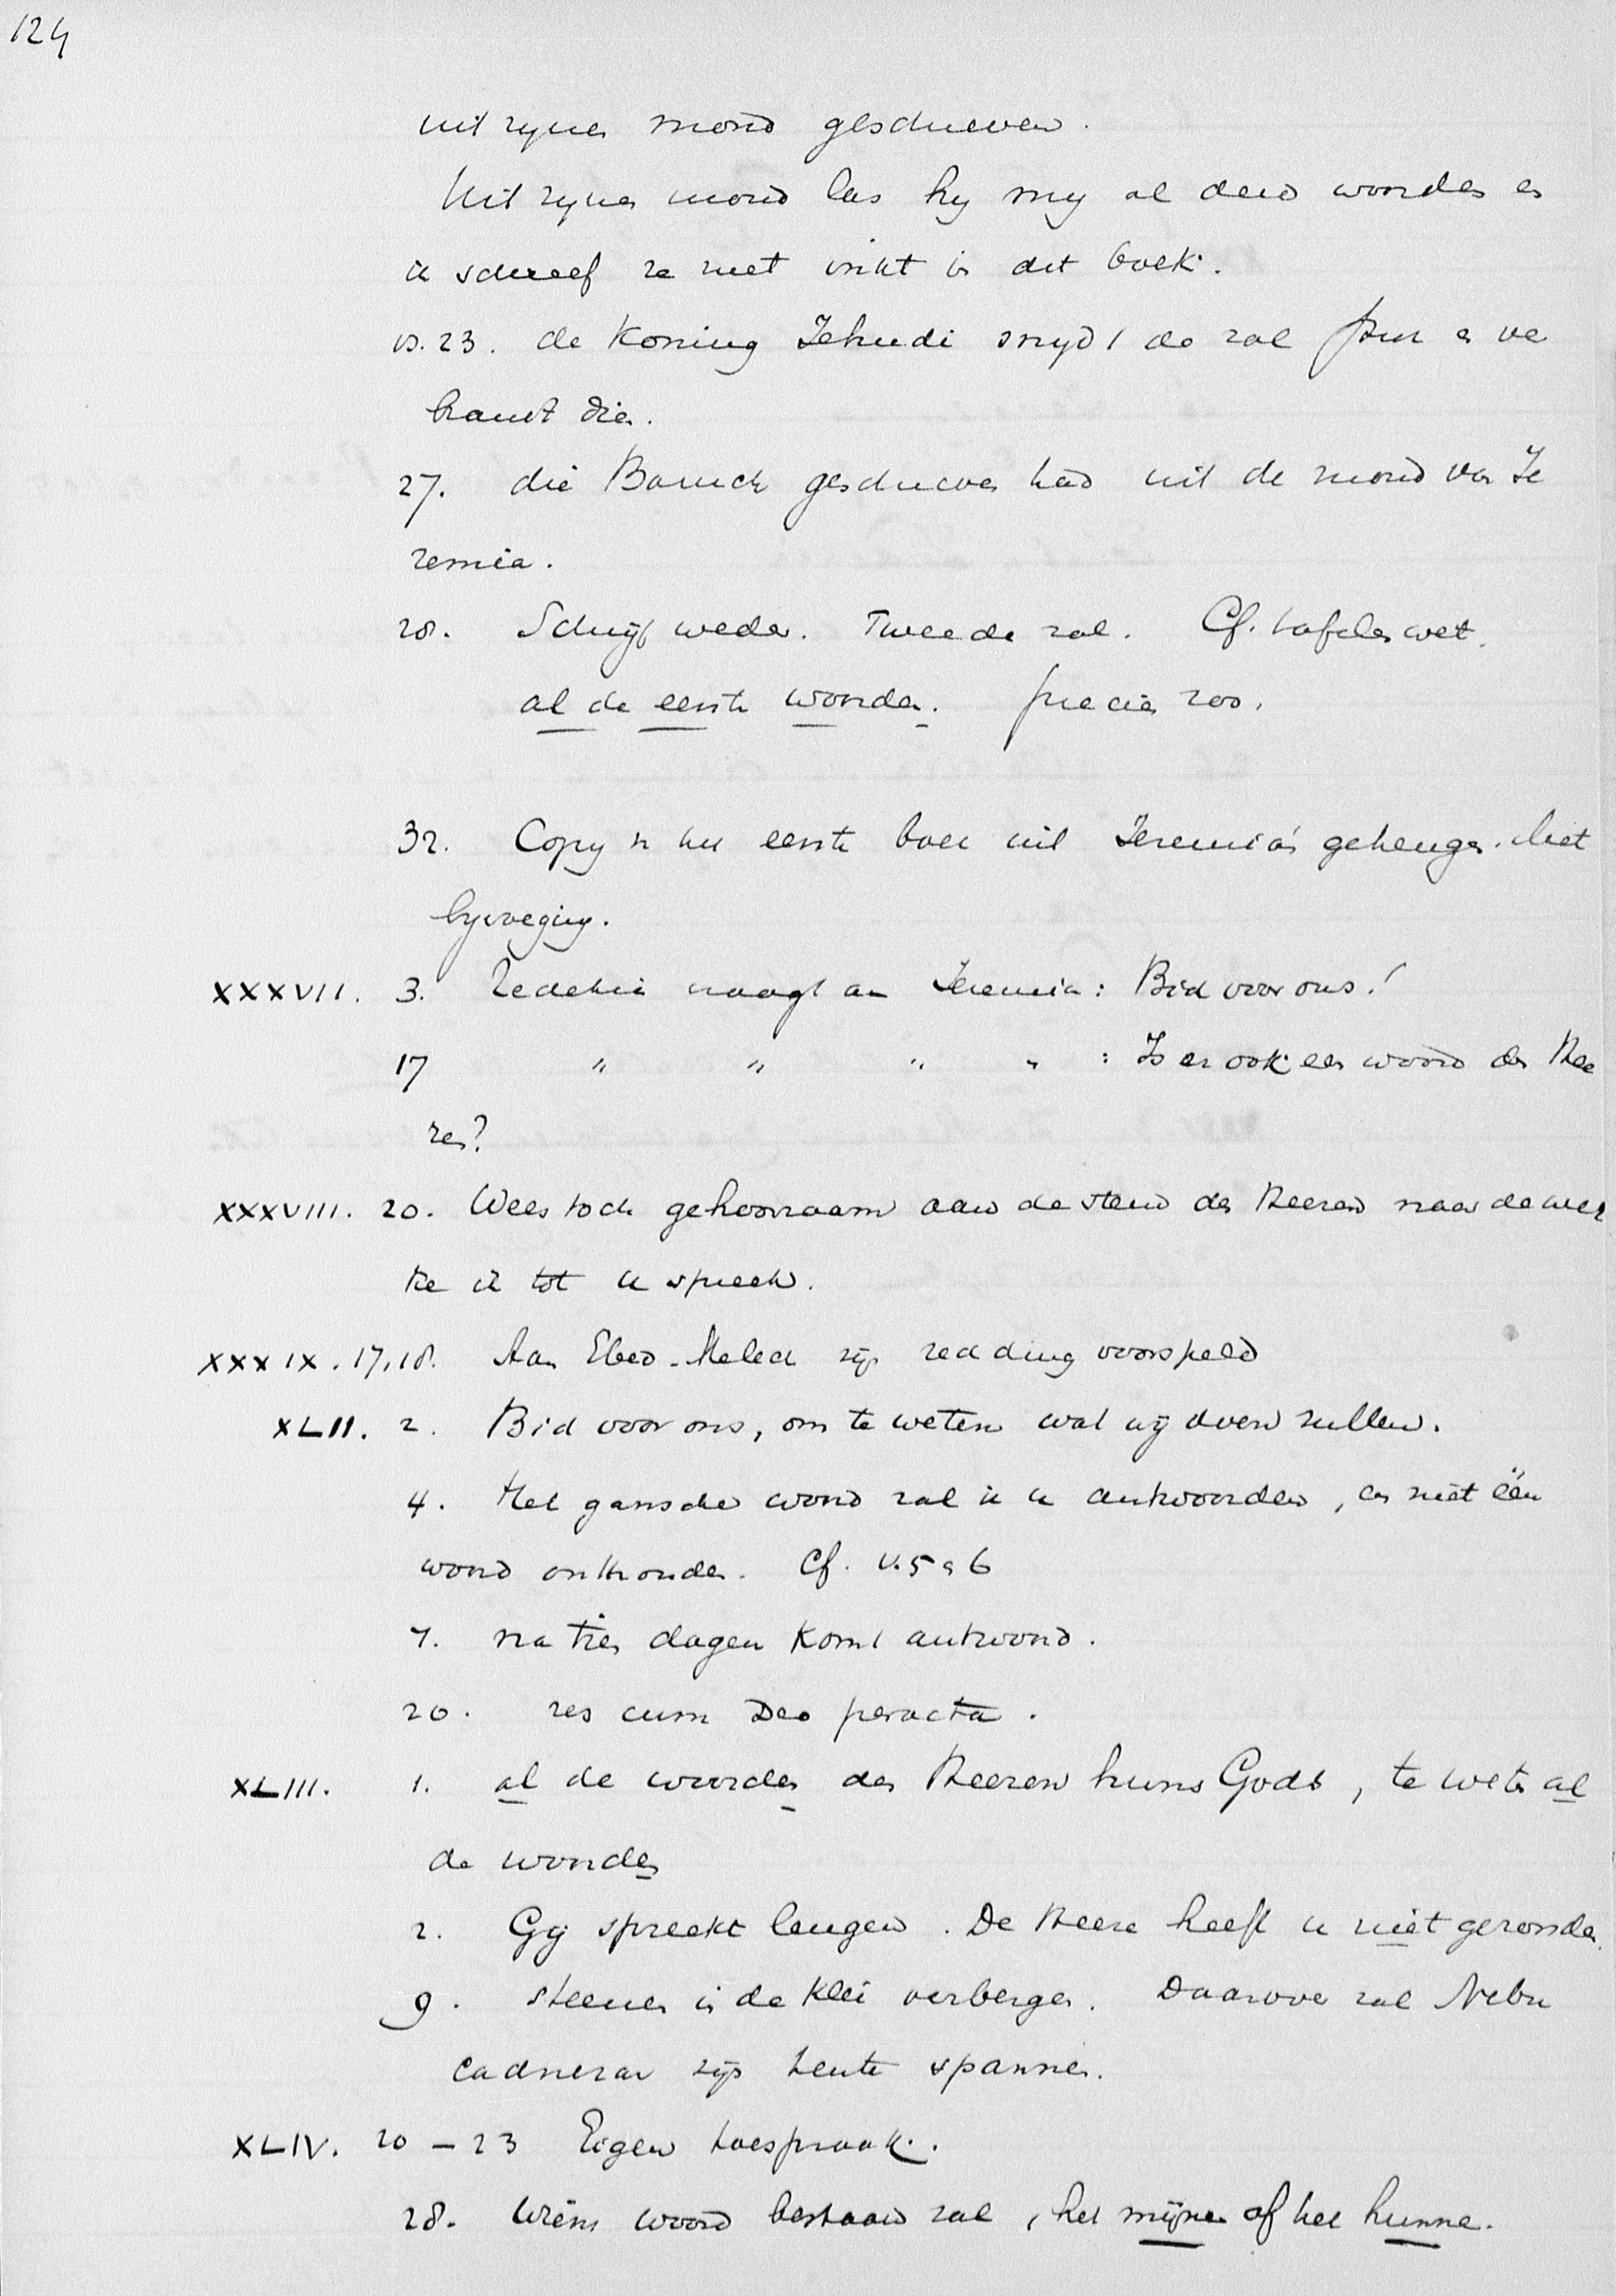 124
uit zijnen mond geschreven.
Uit zijnen mond las hij mij al deze woorden en
ik schreef ze met inkt in dit boek.
vs. 23. de Koning Jehudi snijdt de rol stuk en ver
brandt die.
27. die Baruch geschreven had uit de mond van Je
remia.
28. Schrijf weder. Tweede rol. Cf. tafelen wet.
al de eerste woorden. precies zoo.
32. Copy v. het eerste boek uit Jeremia's geheugen. Met
bijvoeging.
XXXVII. 3. Zedekia vraagt aan Jeremia: Bid voor ons!
17 " " " " : Is er ook een woord des Hee
ren?
XXXVIII. 20. Wees toch gehoorzaam aan de stem des Heeren naar dewel
ke ik tot u spreek.
XXXIX. 17,18. Aan Ebed-Melech zijn redding voorspeld
XLII. 2. Bid voor ons, om te weten wat wij doen zullen.
4. Het gansche woord zal ik u antwoorden, en niet één
woord onthouden. Cf. v. 5 en 6
7. na tien dagen komt antwoord.
20. res cum Deo peracta.
XLIII. 1. al de woorden des Heeren huns Gods, te weten al
de woorden
2. Gij spreekt leugen. De Heere heeft u niet gezonden.
9. steenen in de klei verbergen. Daarover zal Nebu
cadnezar zijn tente spannen.
XLIV. 20-23 Eigen toespraak.
28. Wiens woord bestaan zal, het mijne of het hunne.